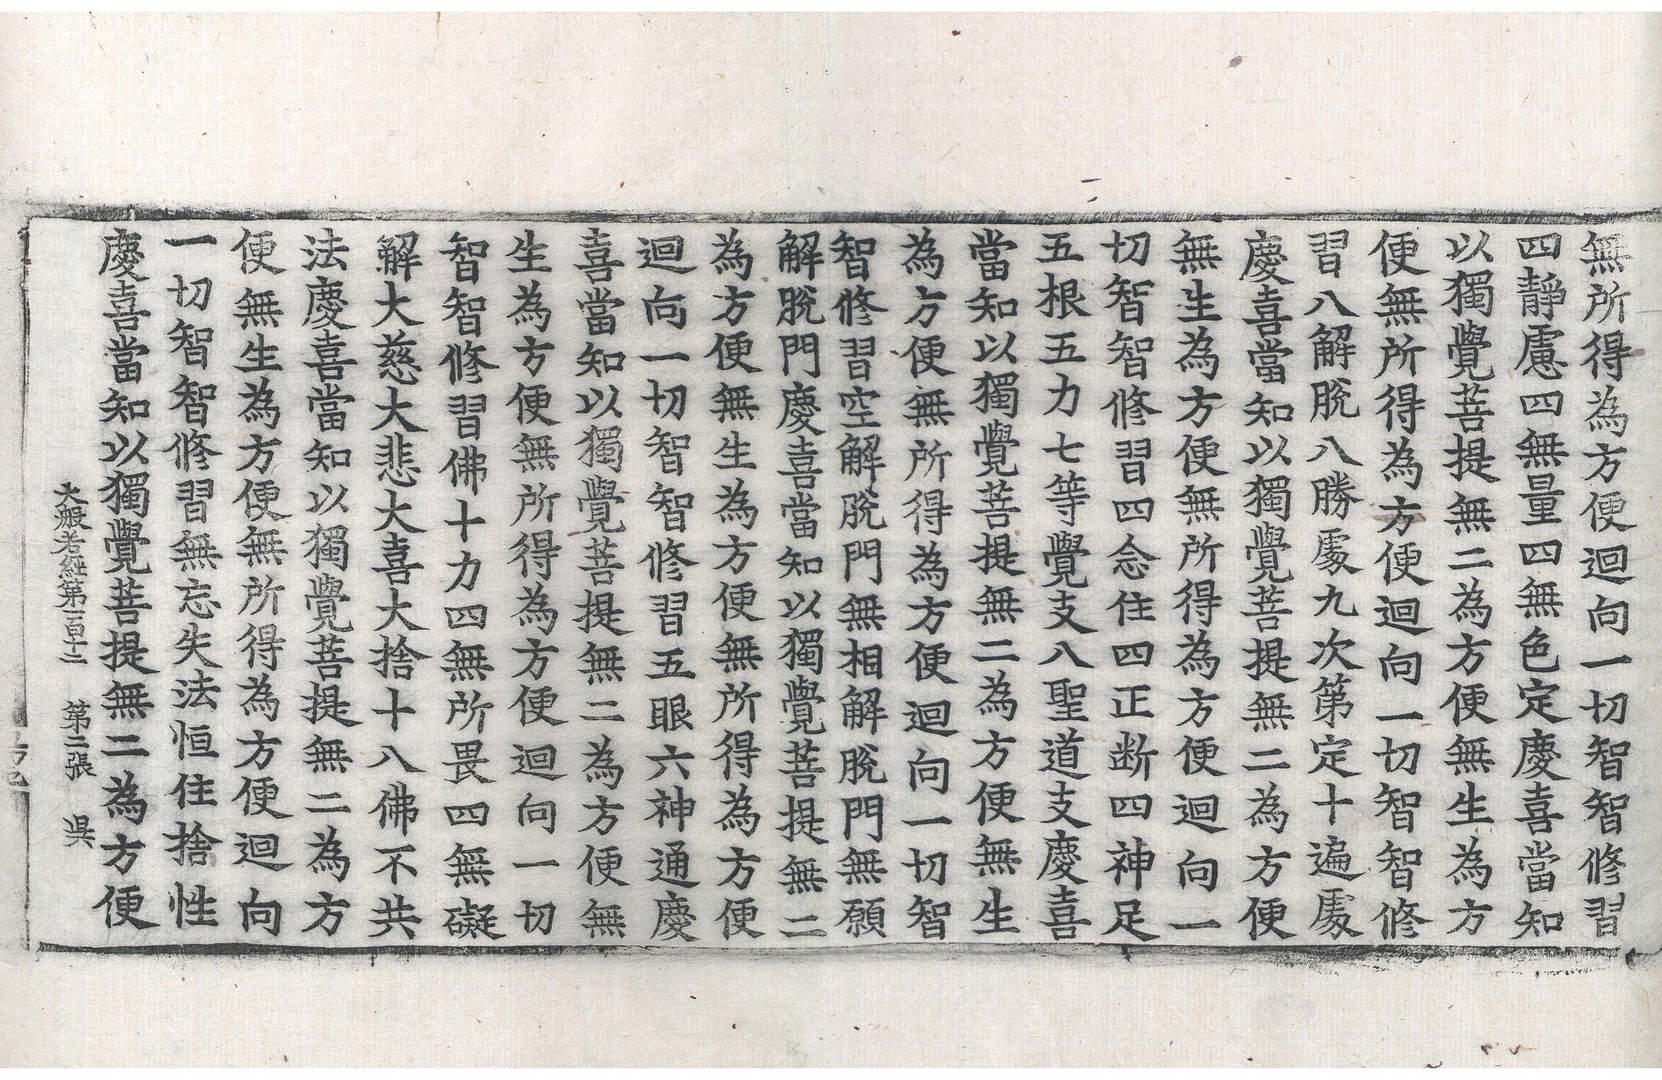 無所得為方便迴向一切智智修習
四靜慮四無量四無色定慶喜當知
以獨覺菩提無二為方便無生為方
便無所得為方便迴向一切智智修
習八解脫八勝處九次第定十遍處
慶喜當知以獨覺菩提無二為方便
無生為方便無所得為方便迴向一
切智智修習四念住四正断四神足
五根五力七等覺支八聖道支慶喜
當知以獨覺菩提無二為方便無生
為方便無所得為方便迴向一切智
智修習空解脫門無相解脫門無願
解脫門慶喜當知以獨覺菩提無二
為方便無生為方便無所得為方便
迴向一切智智修習五眼六神通慶
喜當知以獨覺菩提無二為方便無
生為方便無所得為方便迴向一切
智智修習佛十力四無所畏四無礙
解大慈大悲大喜大捨十八佛不共
法慶喜當知以獨覺菩提無二為方
便無生為方便無所得為方便迴向
一切智智修習無忘失法恒住捨性
慶喜當知以獨覺菩提無二為方便
大般若經第一百十二 第二張 吳